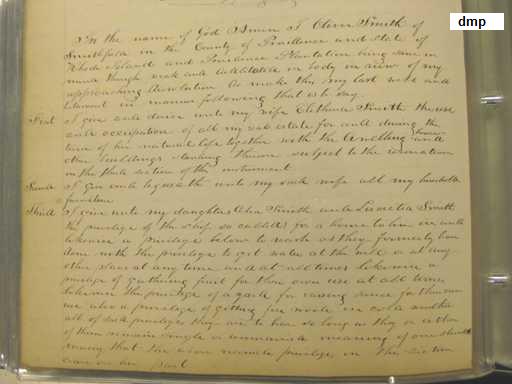 dmp
In the name of God Amen I Oliver Smith of
Smithfield in the County of Providence and State of
Rhode Island and Providence Plantation being sane in
mind though weak and debilitated in body in view of my
approaching dissolution do make this my last will and
testament in manner following that is to say
First I give and devise unto my wife the use
and occupation of all my real estate for and during the
term of her natural life together with the dwelling house and
other buildings standing thereon subject to the
in the third section of this instrument
Second I give and bequeath unto my said wife all my household
furniture
Third I give unto my daughters Smith and Lucretia Smith
the privilege of the so called for a home to live in and
likewise a privilege below to work as they formerly have
done with the privilege to get water at the well or at any
other place at any time and at all times likewise a
privilege of gathering fruit for their own use at all times
likewise the privilege of a garden for raising sauce for their own
use also a privilege of getting fire wood
all of said privileges they are to have so long as they or either
of them remain single or unmarried meaning of one should
marry that the above named privileges in this section
on her part